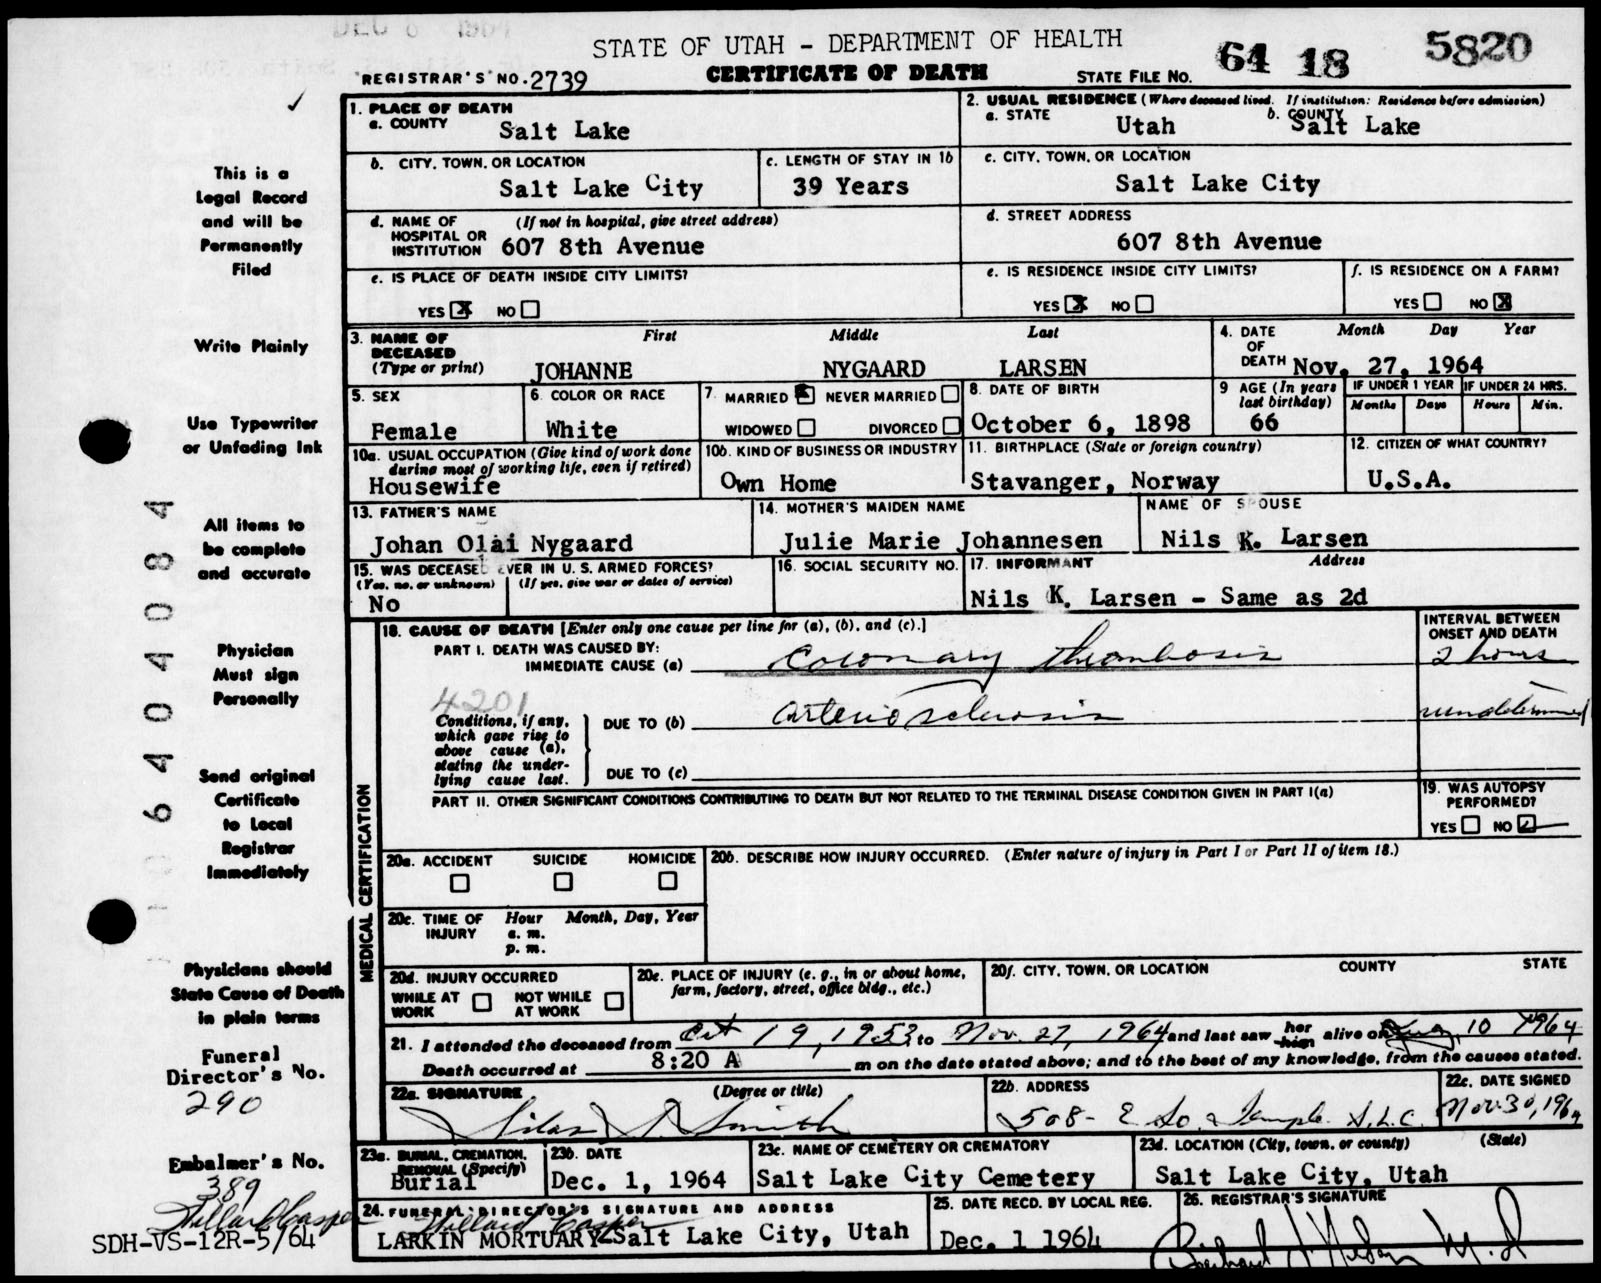 STATE OF UTAH - DEPARTMENT OF HEALTH
REGISTRAR'S NO. 2739 CERTIFICATE OF DEATH STATE FILE NO. 64 18 5820
1. PLACE OF DEATH
a. COUNTY Salt Lake
2. USUAL RESIDENCE (Where deceased lived. If institution: Residence before admission)
a. STATE Utah b. COUNTY Salt Lake
b. CITY, TOWN, OR LOCATION Salt Lake City
c. LENGTH OF STAY IN 1b 39 Years
c. CITY, TOWN, OR LOCATION Salt Lake City
d. NAME OF HOSPITAL OR INSTITUTION (If not in hospital, give street address) 607 8th Avenue
d. STREET ADDRESS 607 8th Avenue
e. IS PLACE OF DEATH INSIDE CITY LIMITS?
YES X NO
e. IS RESIDENCE INSIDE CITY LIMITS?
YES X NO
f. IS RESIDENCE ON A FARM?
YES NO X
3. NAME OF DECEASED (Type or print)
First Middle Last
JOHANNE NYGAARD LARSEN
4. DATE OF DEATH Month Day, Year
Nov. 27, 1964
5. SEX
Female
6. COLOR OR RACE
White
7. MARRIED X NEVER MARRIED
WIDOWED DIVORCED
8. DATE OF BIRTH
October 6, 1898
9 AGE (In years last birthday)
66
IF UNDER 1 YEAR IF UNDER 24 HRS.
Months Days Hours Min.
10a. USUAL OCCUPATION (Give kind of work done during most of working life, even if retired)
Housewife
10b. KIND OF BUSINESS OR INDUSTRY
Own Home
11. BIRTHPLACE (State or foreign country)
Stavanger, Norway
12. CITIZEN OF WHAT COUNTRY?
U.S.A.
13. FATHER'S NAME
Johan Olai Nygaard
14. MOTHER'S MAIDEN NAME
Julie Marie Johannesen
NAME OF SPOUSE
Nils K. Larsen
15. WAS DECEASED EVER IN U. S. ARMED FORCES?
(Yes, no, or unknown) (If yes, give war or dates of service)
No
16. SOCIAL SECURITY NO.
17. INFORMANT Address
Nils K. Larsen - Same as 2d
MEDICAL CERTIFICATION
18. CAUSE OF DEATH [Enter only one cause per line for (a), (b), and (c).]
INTERVAL BETWEEN ONSET AND DEATH
PART I. DEATH WAS CAUSED BY:
IMMEDIATE CAUSE (a) Coronary thrombosis 2 hours
4201
Conditions, if any, which gave rise to above cause (a), stating the underlying cause last.
DUE TO (b) arteriosclerosis undetermined
DUE TO (c)
PART II. OTHER SIGNIFICANT CONDITIONS CONTRIBUTING TO DEATH BUT NOT RELATED TO THE TERMINAL DISEASE CONDITION GIVEN IN PART I(a)
19. WAS AUTOPSY PERFORMED?
YES NO
20a. ACCIDENT SUICIDE HOMICIDE
20b. DESCRIBE HOW INJURY OCCURRED. (Enter nature of injury in Part I or Part II of item 18.)
20c. TIME OF INJURY Hour Month, Day, Year
a. m.
p. m.
20d. INJURY OCCURRED
WHILE AT WORK NOT WHILE AT WORK
20e. PLACE OF INJURY (e. g., in or about home, farm, factory, street, office bldg., etc.)
20f. CITY, TOWN, OR LOCATION COUNTY STATE
21. I attended the deceased from Oct 19, 1953 to Nov. 27, 1964 and last saw her him alive on Aug, 10 1964
Death occurred at 8:20 A m on the date stated above; and to the best of my knowledge, from the causes stated.
22a. SIGNATURE (Degree or title)
Silas S. Smith
22b. ADDRESS
508- E So. Temple S.L.C.
22c. DATE SIGNED
Nov. 30, 1964
23a. BURIAL, CREMATION, REMOVAL (Specify)
Burial
23b. DATE
Dec. 1, 1964
23c. NAME OF CEMETERY OR CREMATORY
Salt Lake City Cemetery
23d. LOCATION (City, town, or county) (State)
Salt Lake City, Utah
24. FUNERAL DIRECTOR'S SIGNATURE AND ADDRESS
Willard Casper
LARKIN MORTUARY-Salt Lake City, Utah
25. DATE RECD. BY LOCAL REG.
Dec. 1 1964
26. REGISTRAR'S SIGNATURE
M.D
This is a
Legal Record
and will be
Permanently
Filed
Write Plainly
Use Typewriter
or Unfading Ink
All items to
be complete
and accurate
Physician
Must sign
Personally
Send original
Certificate
to Local
Registrar
Immediately
Physicians should
State Cause of Death
in plain terms
Funeral
Director's No.
290
Embalmer's No.
389
Willard Casper
SDH-VS-12R-5/64
6404084